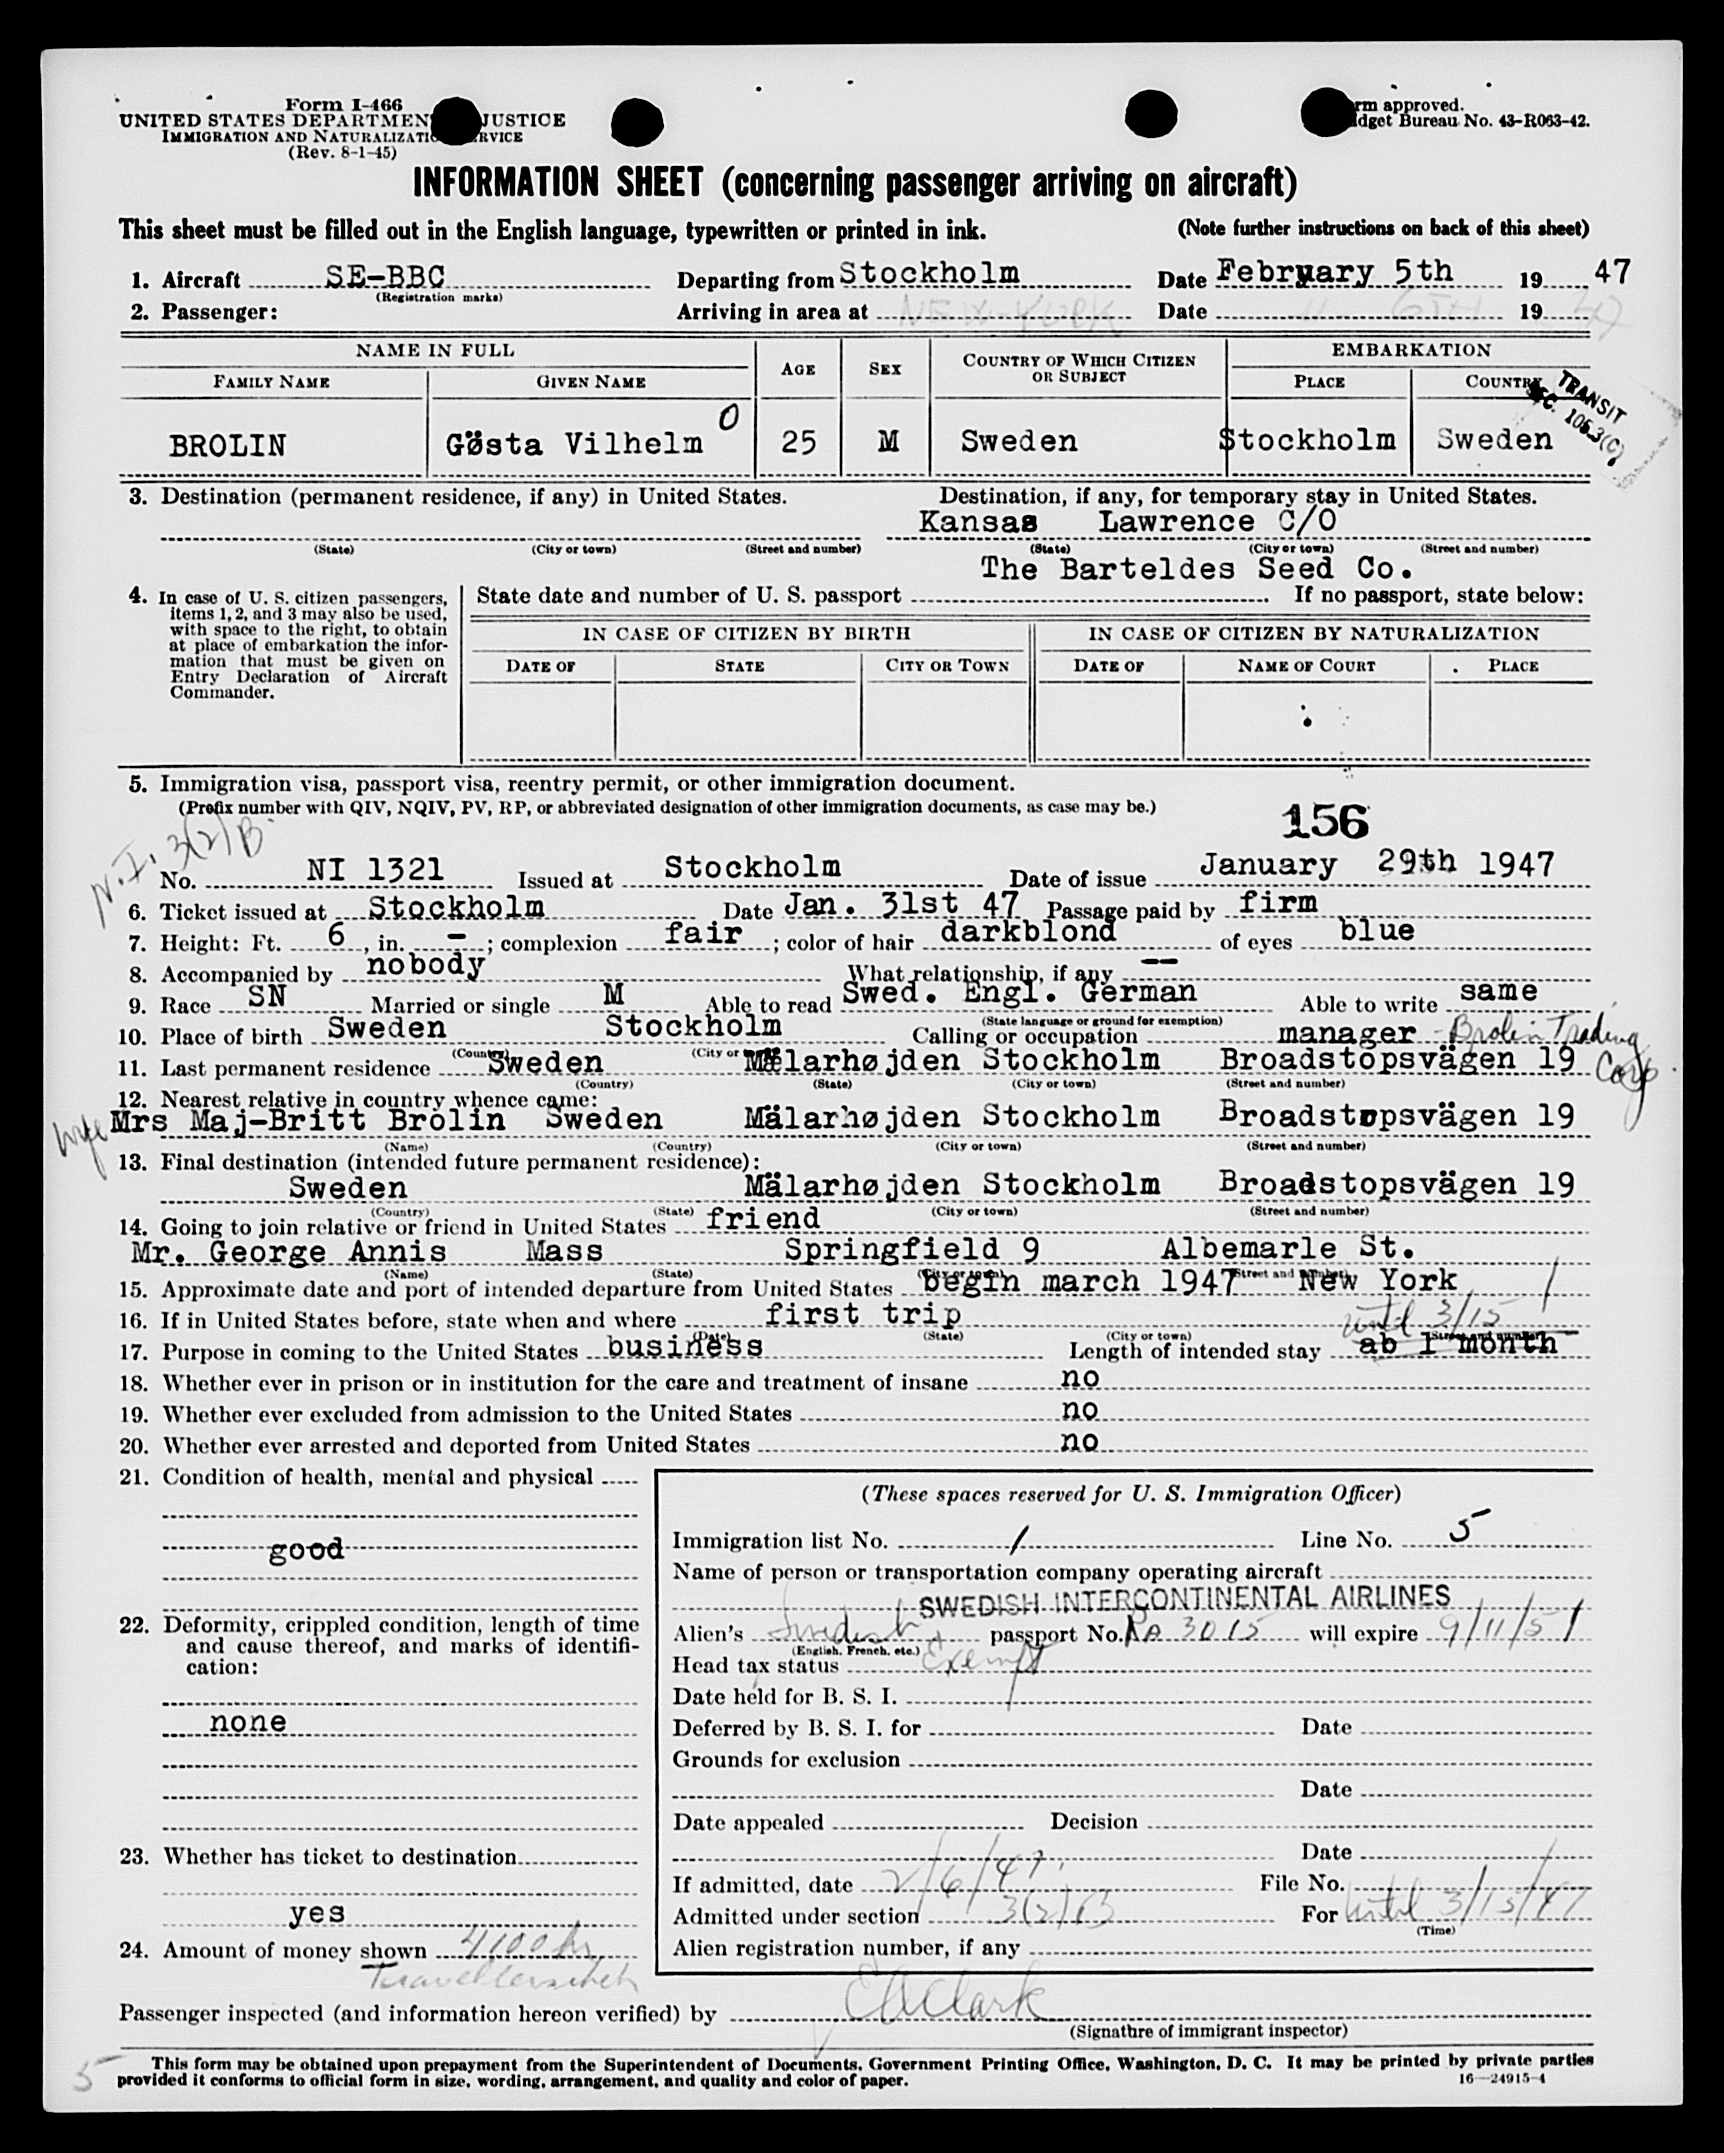 Form I-466
UNITED STATES DEPARTMEN JUSTICE
IMMIGRATION AND NATURALIZATIO RVICE
(Rev. 8-1-45)
rm approved.
dget Bureau No. 43-R063-42.
INFORMATION SHEET (concerning passenger arriving on aircraft)
This sheet must be filled out in the English language, typewritten or printed in ink. (Note further instructions on back of this sheet)
1. Aircraft SE-BBC Departing from Stockholm Date February 5th 19 47
(Registration marks)
2. Passenger: Arriving in area at NEW YORK Date " 6TH 19 47
NAME IN FULL AGE SEX COUNTRY OF WHICH CITIZEN OR SUBJECT EMBARKATION
FAMILY NAME GIVEN NAME PLACE COUNTRY
TRANSIT
SEC. 105.3(C)
O
BROLIN Gösta Vilhelm 25 M Sweden Stockholm Sweden
3. Destination (permanent residence, if any) in United States. Destination, if any, for temporary stay in United States.
Kansas Lawrence C/O
(State) (City or town) (Street and number) (State) (City or town) (Street and number)
The Barteldes Seed Co.
4. In case of U. S. citizen passengers, items 1, 2, and 3 may also be used, with space to the right, to obtain at place of embarkation the information that must be given on Entry Declaration of Aircraft Commander.
State date and number of U. S. passport If no passport, state below:
IN CASE OF CITIZEN BY BIRTH IN CASE OF CITIZEN BY NATURALIZATION
DATE OF STATE CITY OR TOWN DATE OF NAME OF COURT PLACE
5. Immigration visa, passport visa, reentry permit, or other immigration document.
(Prefix number with QIV, NQIV, PV, RP, or abbreviated designation of other immigration documents, as case may be.)
156
N.I. 3(2)B
No. NI 1321 Issued at Stockholm Date of issue January 29th 1947
6. Ticket issued at Stockholm Date Jan. 31st 47 Passage paid by firm
7. Height: Ft. 6, in. -; complexion fair; color of hair darkblond of eyes blue
8. Accompanied by nobody What relationship, if any --
9. Race SN Married or single M Able to read Swed. Engl. German Able to write same
(State language or ground for exemption)
10. Place of birth Sweden Stockholm Calling or occupation manager - Brolin Trading Corp.
(Country) (City or
11. Last permanent residence Sweden Mälarhøjden Stockholm Broadstopsvägen 19
(Country) (State) (City or town) (Street and number)
12. Nearest relative in country whence came:
wife Mrs Maj-Britt Brolin Sweden Mälarhøjden Stockholm Broadstopsvägen 19
(Name) (Country) (City or town) (Street and number)
13. Final destination (intended future permanent residence):
Sweden Mälarhøjden Stockholm Broadstopsvägen 19
(Country) (State) (City or town) (Street and number)
14. Going to join relative or friend in United States friend
Mr. George Annis Mass Springfield 9 Albemarle St.
(Name) (State) (City or town) (Street and number)
15. Approximate date and port of intended departure from United States begin march 1947 New York
16. If in United States before, state when and where first trip
until 3/15
(Date) (State) (City or town) (Street and number)
17. Purpose in coming to the United States business Length of intended stay ab 1 month
18. Whether ever in prison or in institution for the care and treatment of insane no
19. Whether ever excluded from admission to the United States no
20. Whether ever arrested and deported from United States no
21. Condition of health, mental and physical
good
22. Deformity, crippled condition, length of time and cause thereof, and marks of identification:
none
23. Whether has ticket to destination
yes
24. Amount of money shown 4100 kr
Travellerscheck
(These spaces reserved for U. S. Immigration Officer)
Immigration list No. 1 Line No. 5
Name of person or transportation company operating aircraft
SWEDISH INTERCONTINENTAL AIRLINES
Alien's Swedish passport No. RA 3015 will expire 9/11/51
(English, French, etc.)
Head tax status Exempt
Date held for B. S. I.
Deferred by B. S. I. for Date
Grounds for exclusion
Date
Date appealed Decision
Date
If admitted, date 2/6/47. File No.
Admitted under section 3(2)B For until 3/15/47
(Time)
Alien registration number, if any
Passenger inspected (and information hereon verified) by CAClark
(Signature of immigrant inspector)
5
This form may be obtained upon prepayment from the Superintendent of Documents, Government Printing Office, Washington, D. C. It may be printed by private parties
provided it conforms to official form in size, wording, arrangement, and quality and color of paper.
16—24915-4